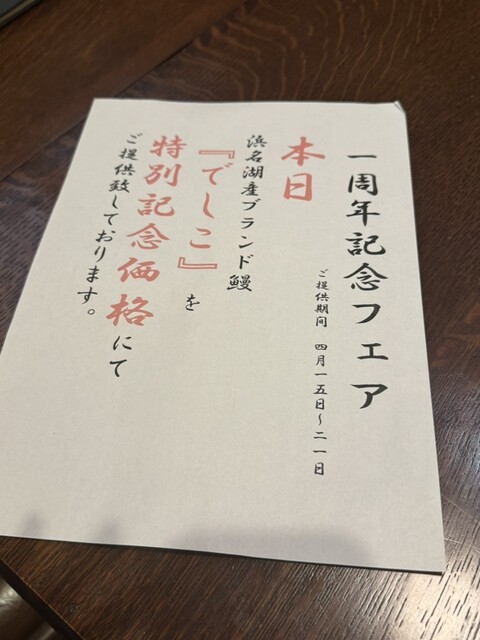 一周年記念フェア
ご提供期間 四月一五日〜二一日
本日
浜名湖産ブランド鰻
『でしこ』を
特別記念価格にて
ご提供致しております。